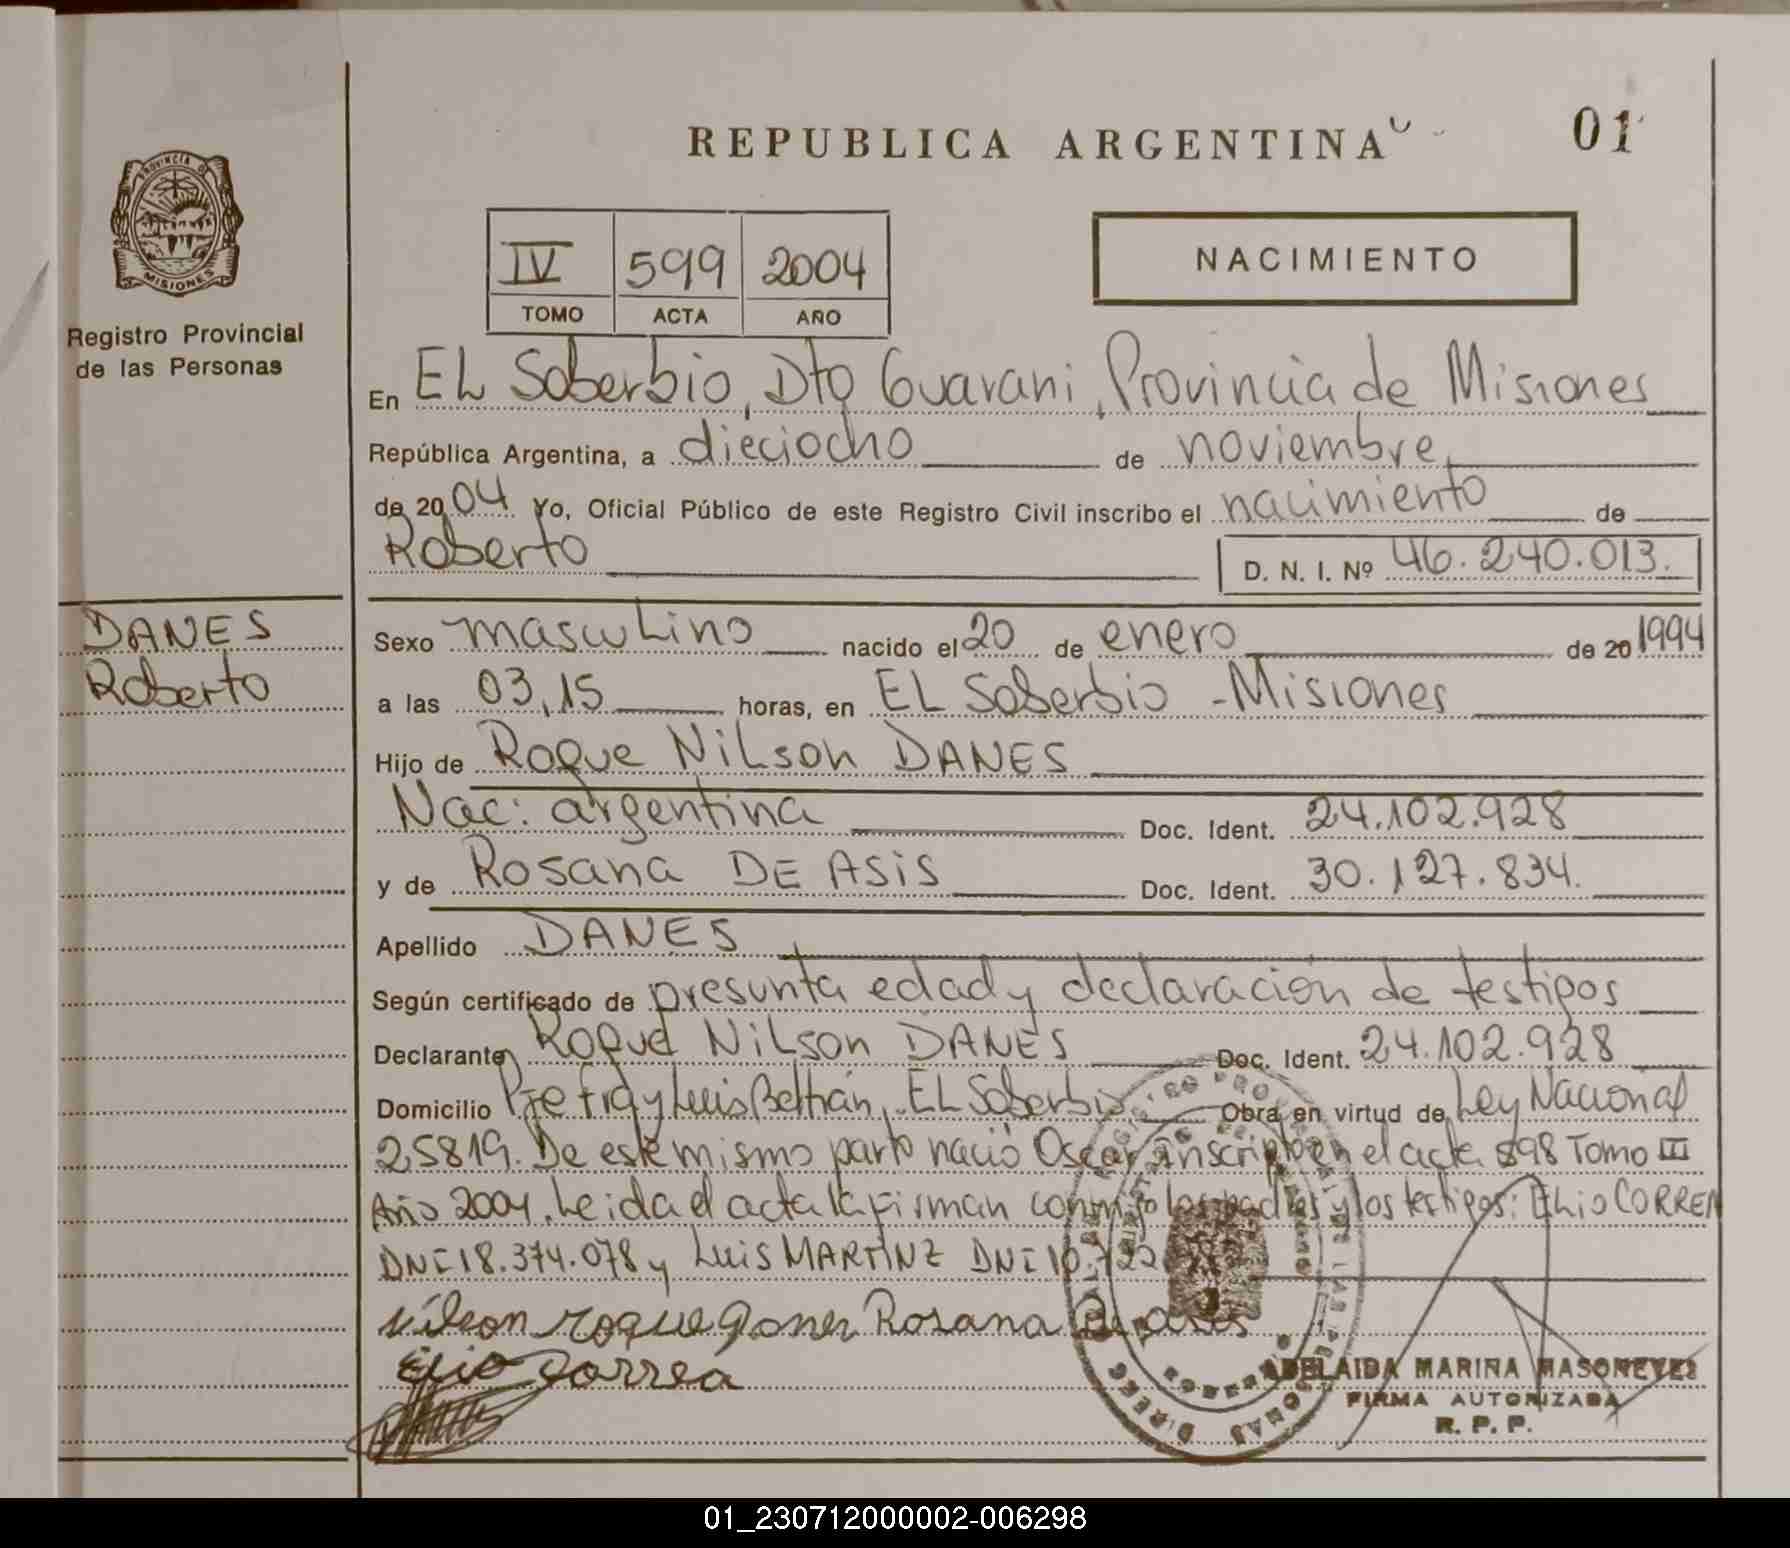 REPUBLICA ARGENTINA
01
PROVINCIA DE
MISIONES
Registro Provincial
de las Personas
IV 599 2004
TOMO ACTA AÑO
NACIMIENTO
En EL Soberbio, Dto Guarani, Provincia de Misiones
República Argentina, a dieciocho de noviembre
de 2004 Yo, Oficial Público de este Registro Civil inscribo el nacimiento de
Roberto D. N. I. Nº 46.240.013.
DANES
Roberto
Sexo masculino nacido el 20 de enero de 20 1994
a las 03,15 horas, en EL Soberbio - Misiones
Hijo de Roque NiLson DANES
Nac: argentina Doc. Ident. 24.102.928
y de Rosana DE ASiS Doc. Ident. 30.127.834.
Apellido DANES
Según certificado de presunta edad y declaración de testigos
Declarante Roque NiLson DANES Doc. Ident. 24.102.928
Domicilio Pje fray Luis Beltrán, EL Soberbio Obra en virtud de Ley Nacional
25819. De este mismo parto nació Oscar inscripto en el acta 598 Tomo III
Año 2004. Leida el acta la firman conmigo los padres y los testigos: ELio CORREA
DNI 18.374.078 y Luis MARTINZ DNI 10.722
Nilson roque Danes Rosana De asis
Elio Correa
ADELAIDA MARINA MASONEYEZ
FIRMA AUTORIZADA
R. P. P.
01_230712000002-006298